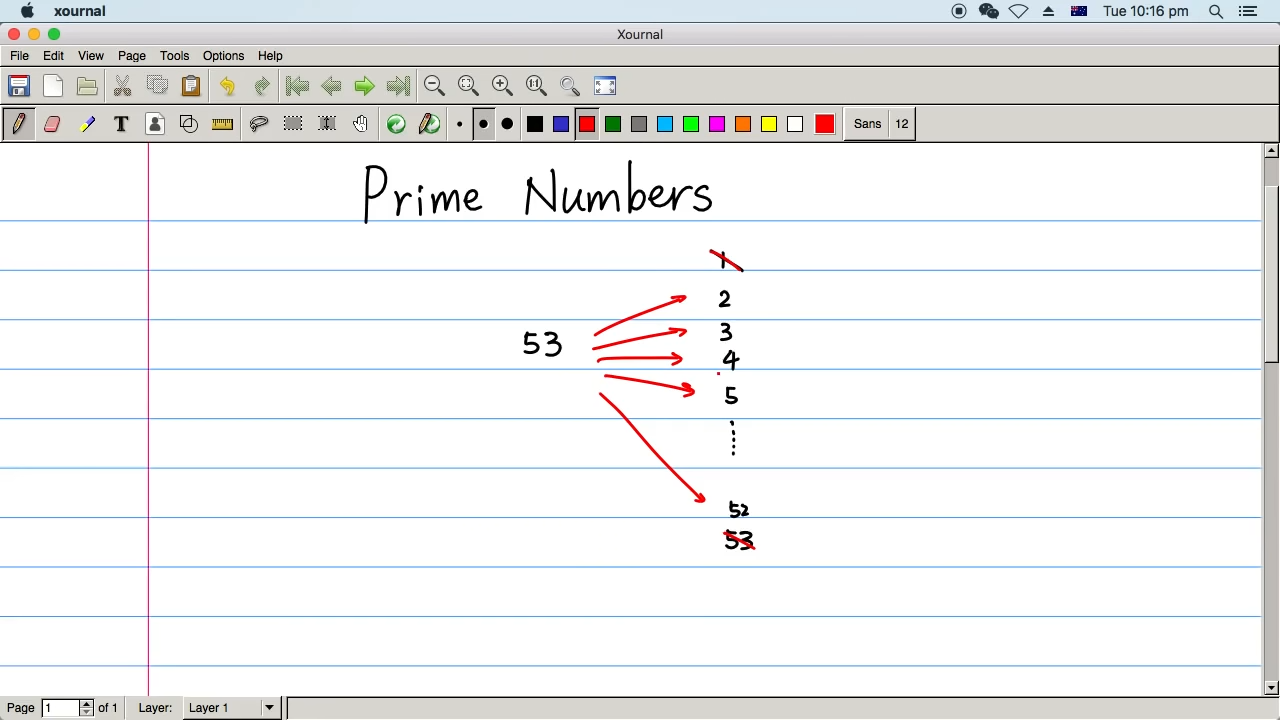 xournal Tue 10:16 pm
Xournal
File Edit View Page Tools Options Help
1:1
T T Sans 12
Prime Numbers
1
2
3
53
4
5
52
53
Page 1 of 1 Layer: Layer 1